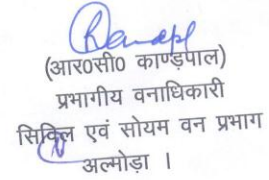 (आर०सी० काण्डपाल)
प्रभागीय वनाधिकारी
सिविल एवं सोयम वन प्रभाग
अल्मोड़ा ।